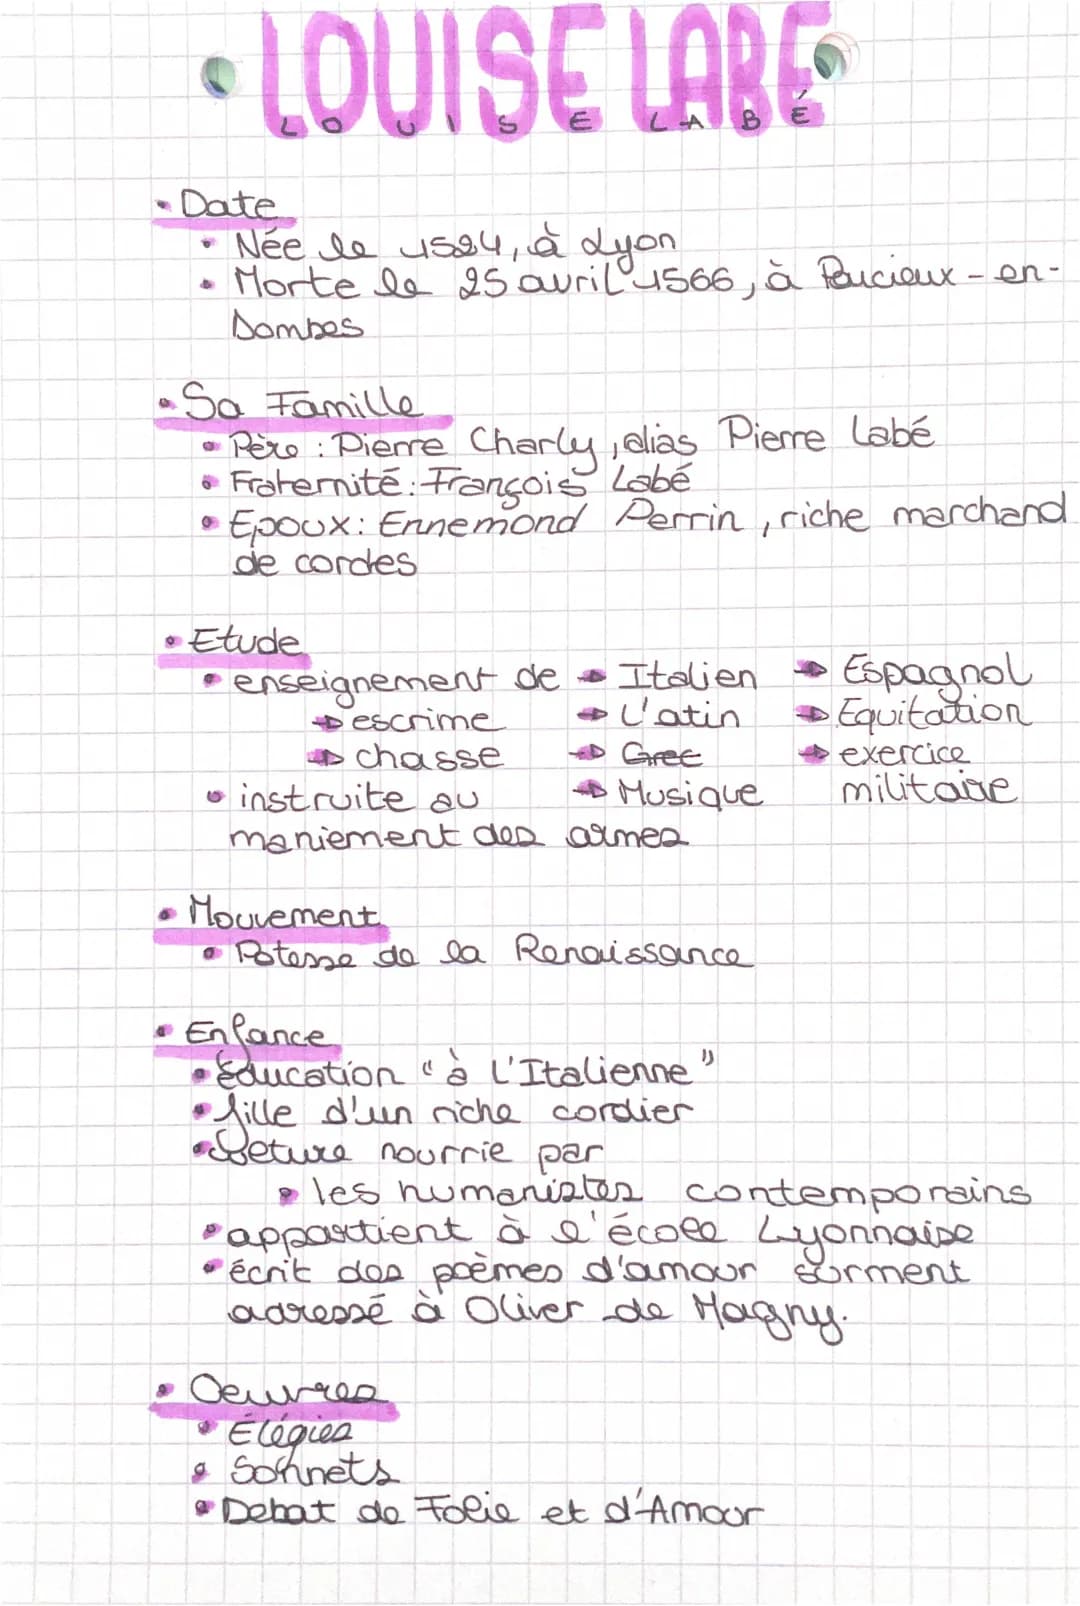 LOUISE LABÉ
LOUISE LABÉ
• Date
• Née le 1524, à Lyon
• Morte le 25 avril 1566, à Parcieux-en-
Dombes
• Sa Famille
• Père : Pierre Charly, alias Pierre Labé
• Fraternité : François Labé
• Epoux : Ennemond Perrin, riche marchand
de cordes
• Etude
• enseignement de → Italien → Espagnol
→ escrime → L'atin → Equitation
→ chasse → Grec → exercice
• instruite au → Musique militaire
maniement des armes
• Mouvement
• Potesse de la Renaissance
• Enfance
• Éducation "à L'Italienne"
• fille d'un riche cordier
• Leture nourrie par
• les humanistes contemporains
• appartient à l'école Lyonnaise
• écrit des poèmes d'amour surment
adressé à Oliver de Magny.
• Oeuvres
• Élégies
• Sonnets
• Debat de Folie et d'Amour